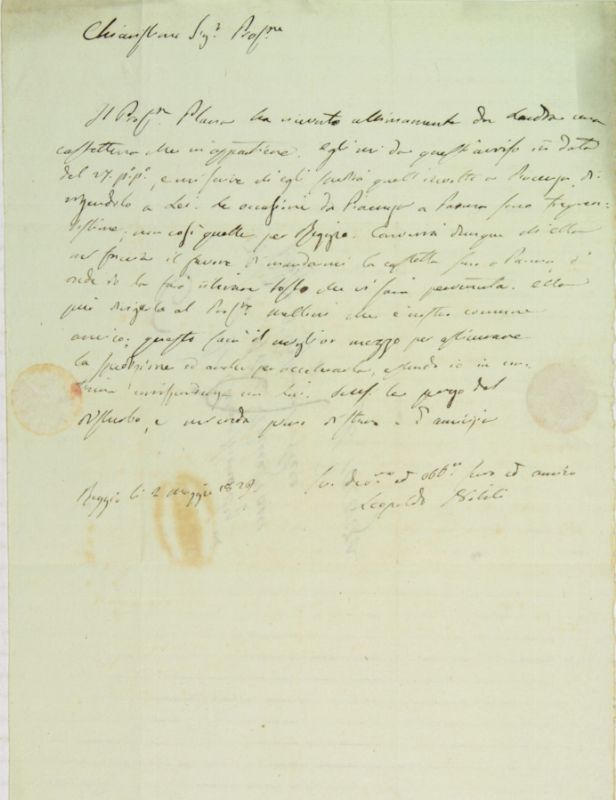 Chiarissimo Sig.r Prof.re
Il Prof.r Plana ha ricevuto ultimamente da Londra una
cassettina che mi appartiene. Egli mi da quest'avviso in data
del 27. p.o p.o, e mi scrive di egli quell'involto a Piacenza, di-
rigendolo a Lei. Le occasioni da Piacenza a Parma sono frequen-
tissime; non così quelle per Reggio. Converrà dunque ch'ella
mi faccia il favore di mandarmi la cassetta fino a Parma, d'
onde io la farò ritirare tosto che vi sarà pervenuta. Ella
può dirigerla al Prof.r Melloni che è nostro comune
amico; questo sarà il miglior mezzo per assicurare
la spedizione ed anche per accelerarla, essendo io in con-
tinua corrispondenza con lui. Scusi la prego del
disturbo, e mi creda piena stima e d'amicizia
Reggio li 2 maggio 1828
Suo dev.mo ed obb.mo servo ed amico
Leopoldo Nobili